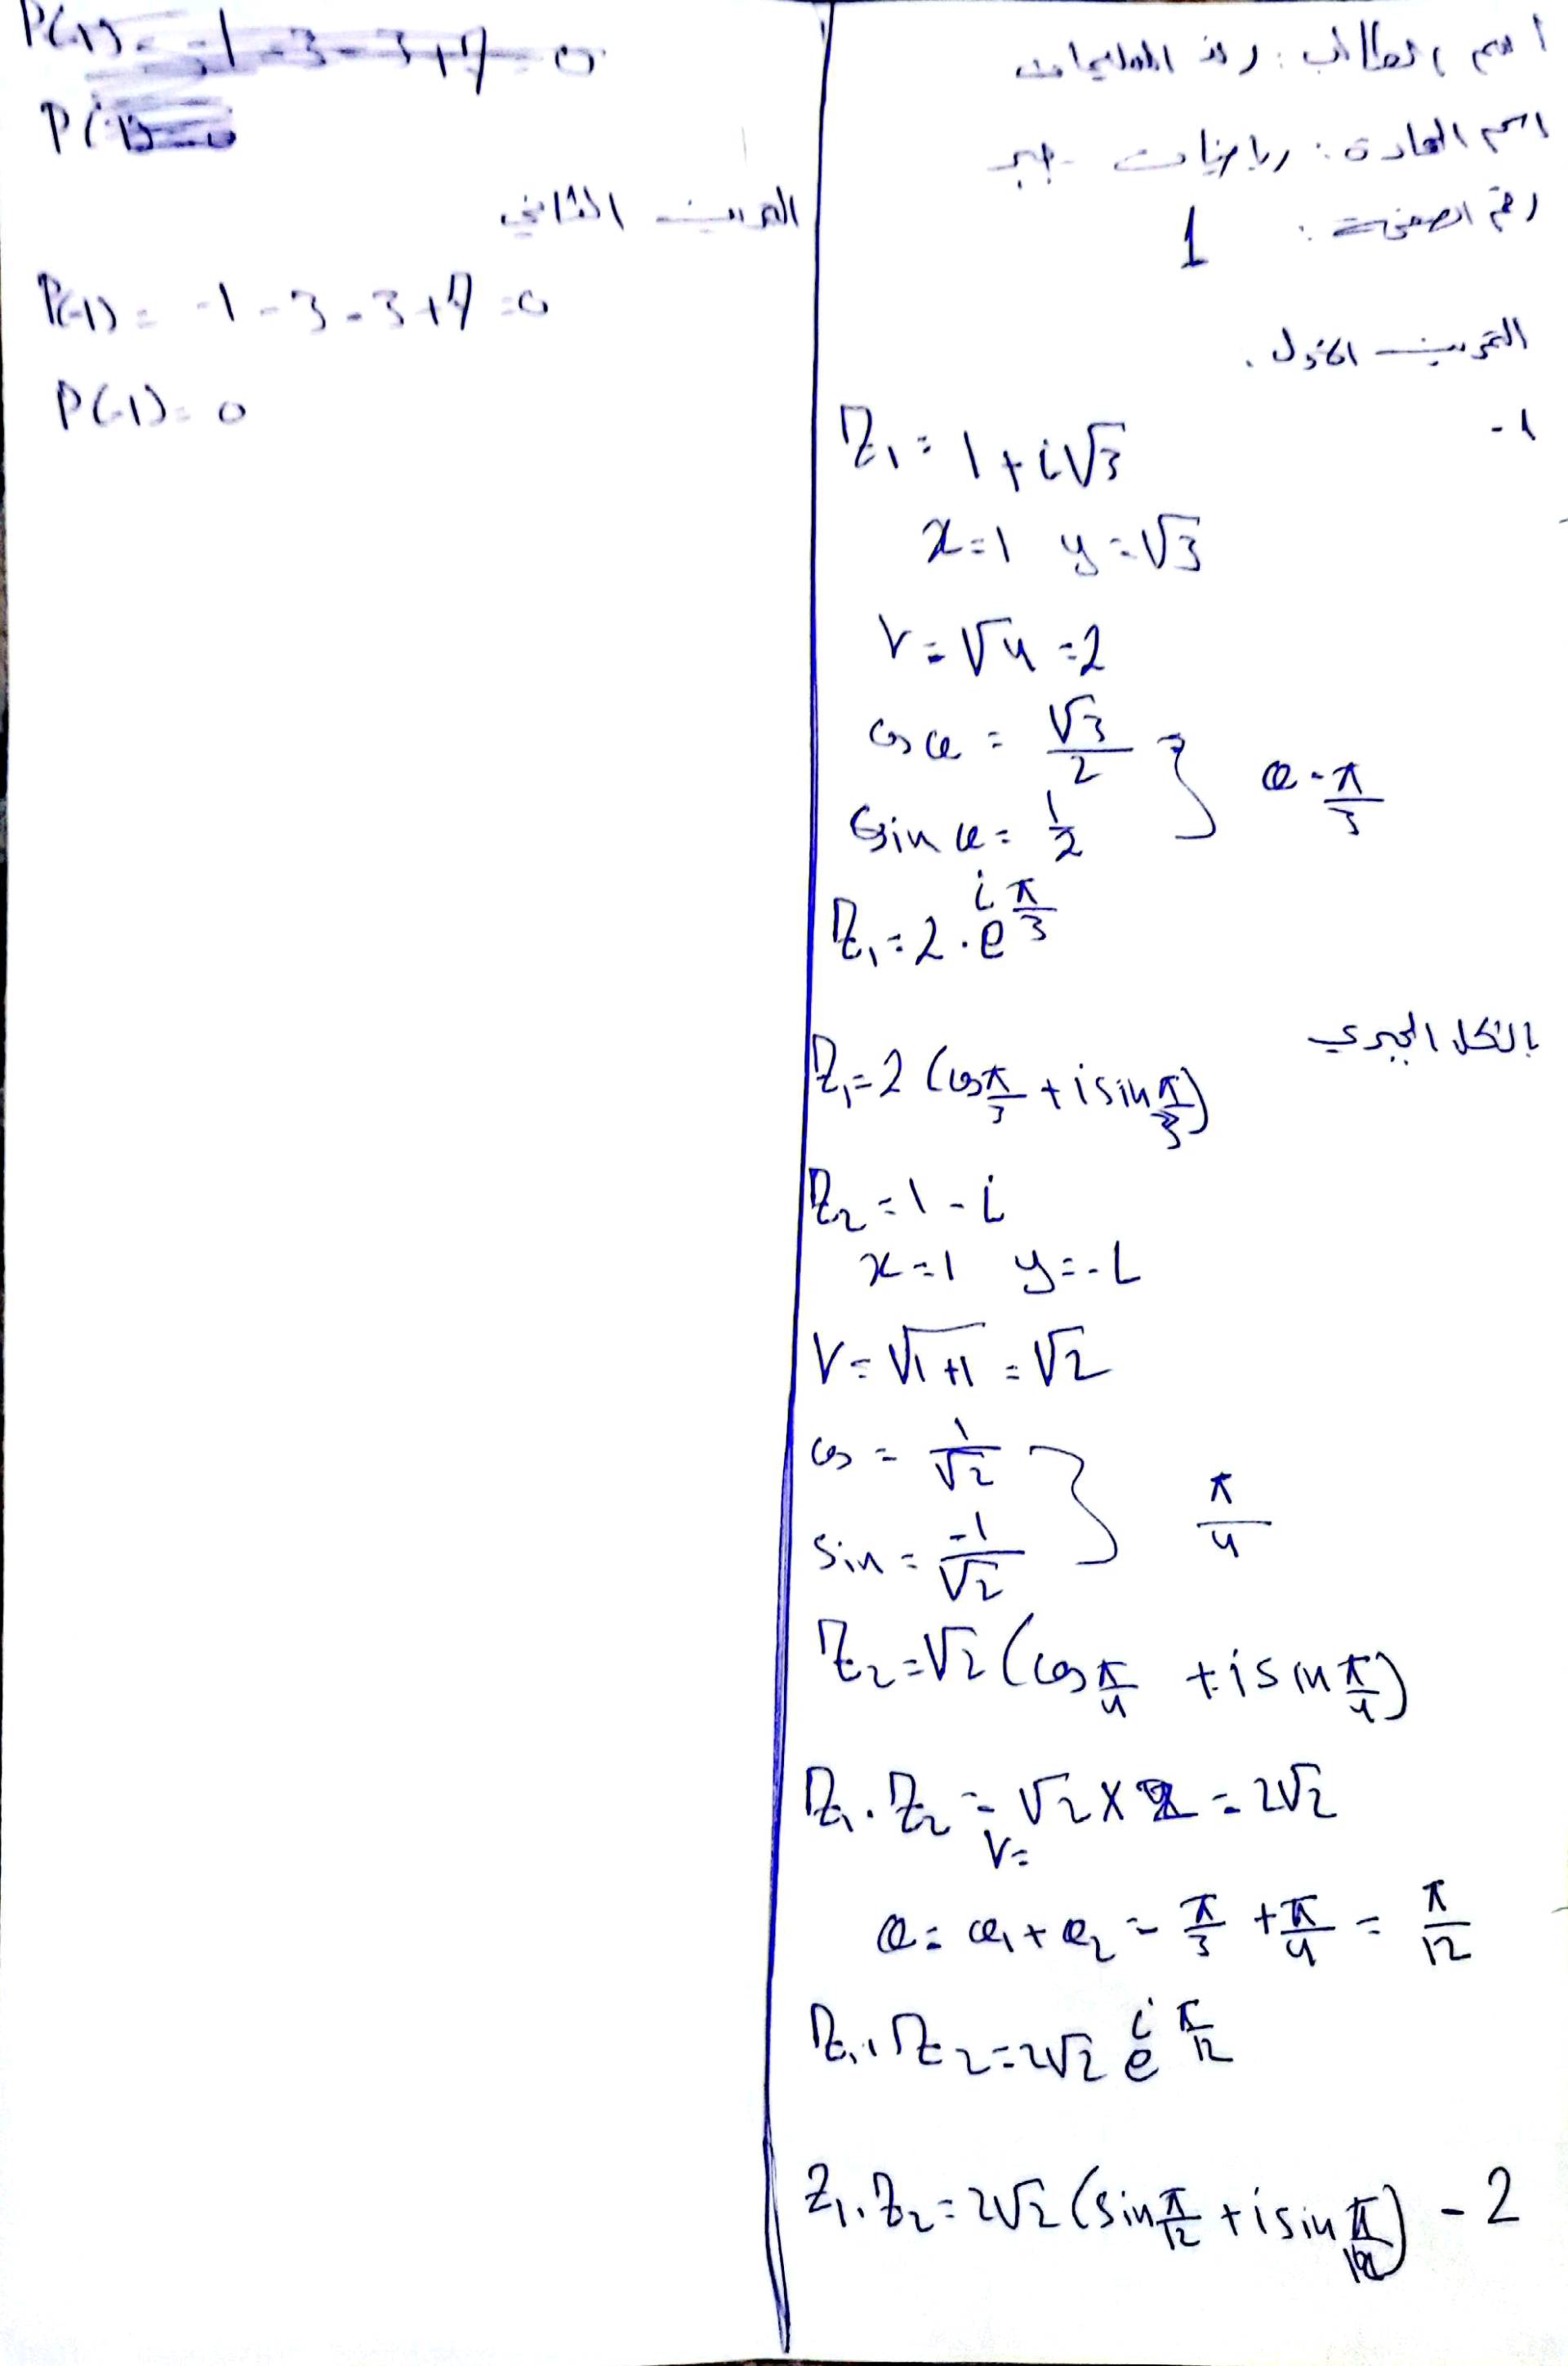 اسم الطالب: رند السليمات
اسم المادة: رياضيات جبر
رقم الصفحة: 1
التمرين الأول.
1-
Z₁ = 1 + i√3
x = 1 y = √3
r = √4 = 2
cos θ = √3/2
sin θ = 1/2 } θ = π/3
Z₁ = 2 . e^(i π/3)
بالشكل الجبري
Z₁ = 2 (cos π/3 + i sin π/3)
Z₂ = 1 - i
x = 1 y = -1
r = √1+1 = √2
cos = 1/√2
sin = -1/√2 } π/4
Z₂ = √2 (cos π/4 + i sin π/4)
Z₁ . Z₂ = √2 × 2 = 2√2
r =
θ = θ₁ + θ₂ = π/3 + π/4 = π/12
Z₁ . Z₂ = 2√2 e^(i π/12)
Z₁ . Z₂ = 2√2 (sin π/12 + i sin π/12) - 2
P(-1) = -1 - 3 - 3 + 7 = 0
P(-1) = 0
التمرين الثاني
P(-1) = -1 - 3 - 3 + 7 = 0
P(-1) = 0